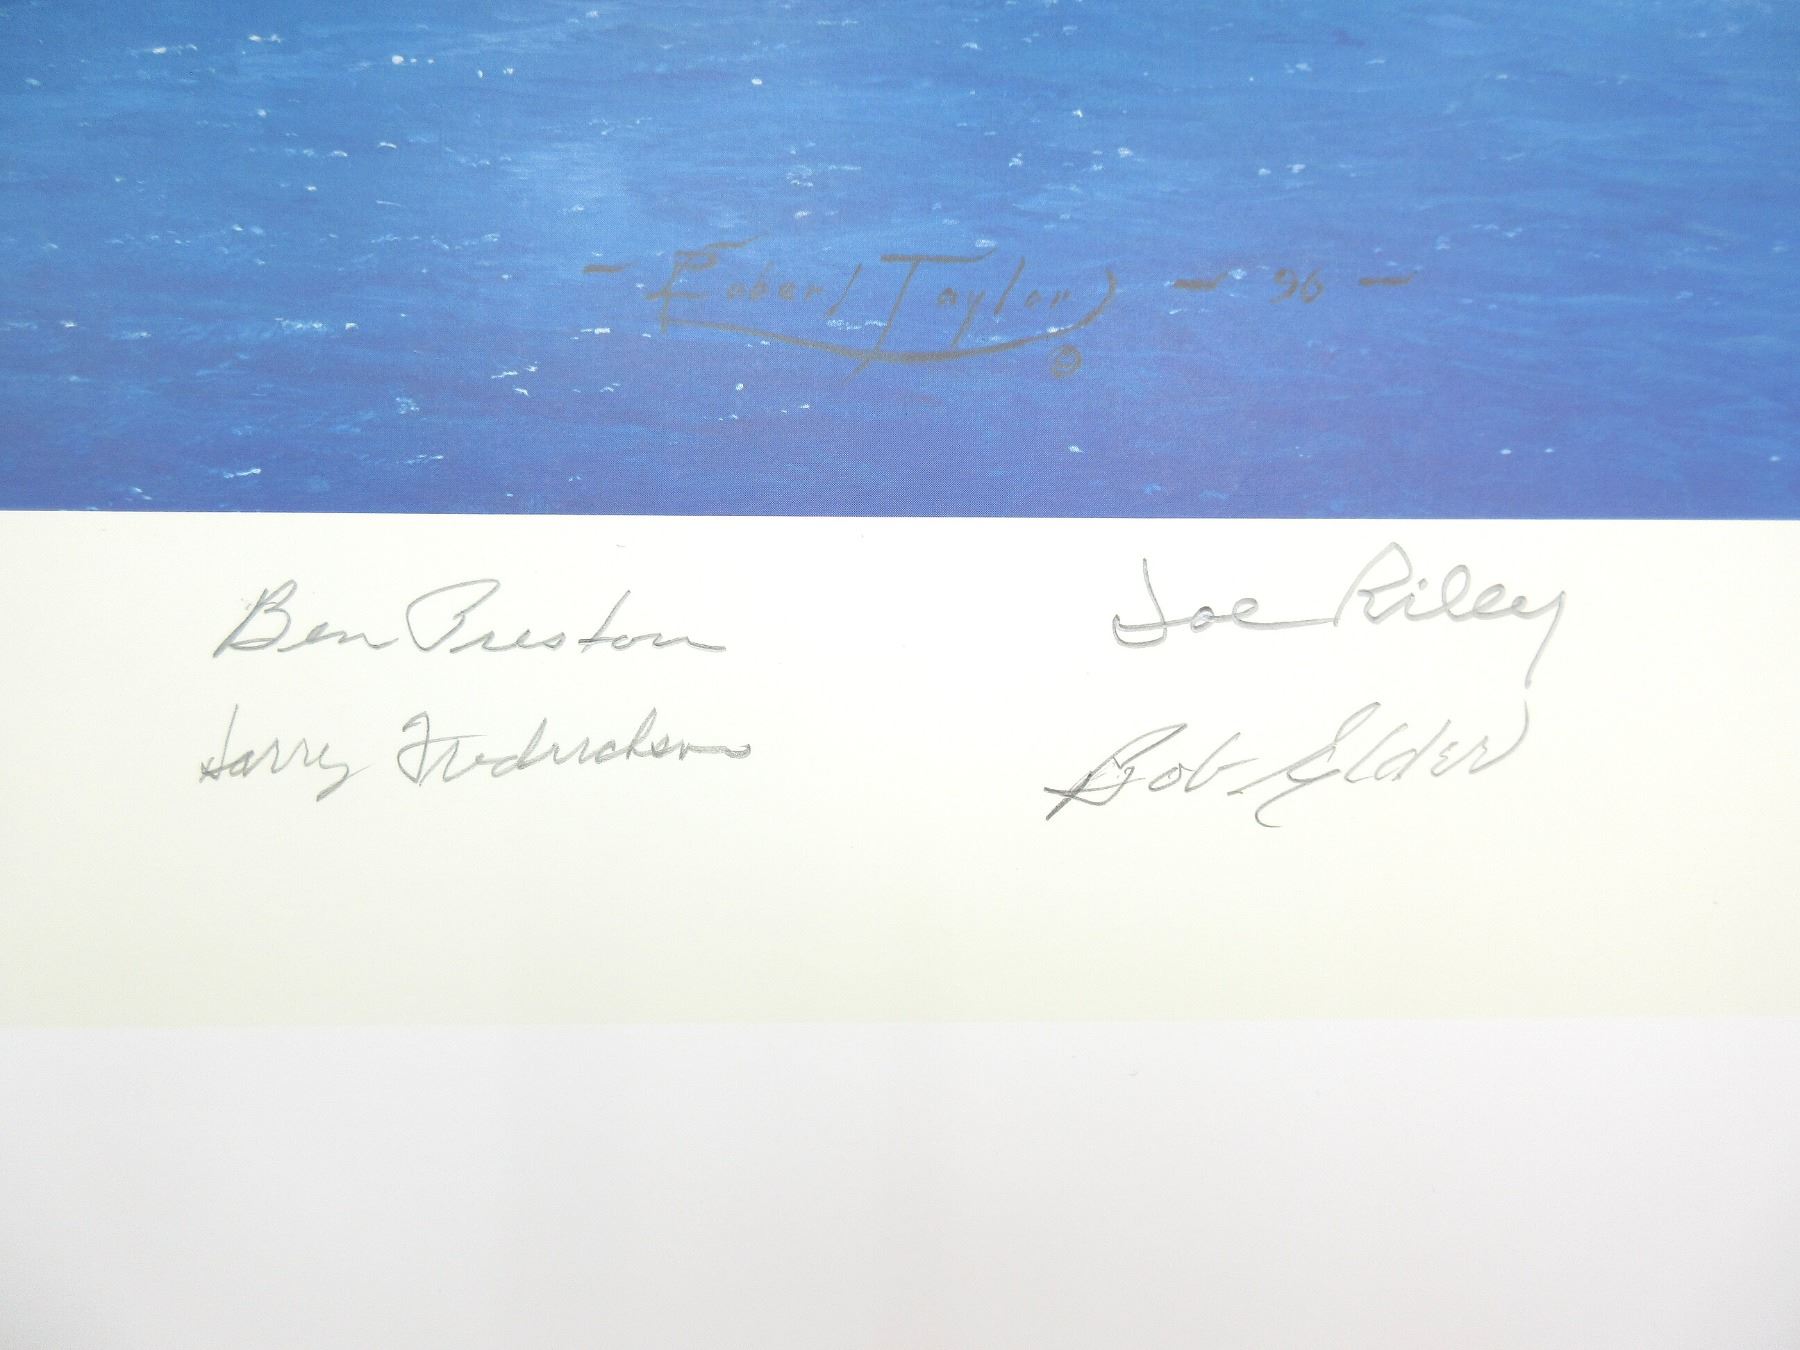 - Robert Taylor - 96 -
©
Ben Preston Joe Riley
Harry Fredrickson Bob Elder